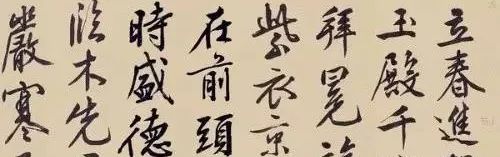 立春進
玉殿千
拜冕旒
紫衣京
在前頭
時盛德
臨木先
嚴寒